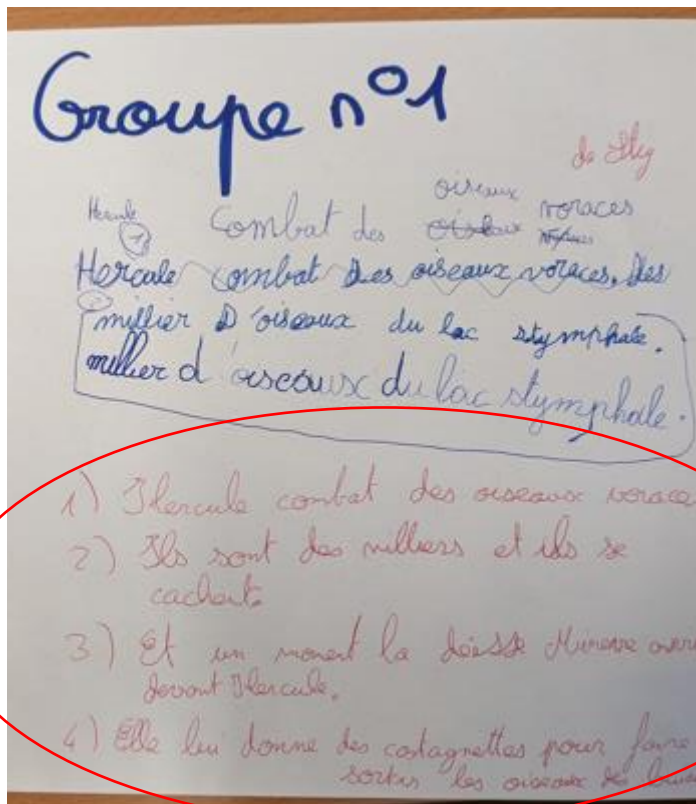 Groupe n°1
de Sty
oiseaux
Hercule Combat des oiseaux voraces
1)
Hercule combat Des oiseaux voraces. Des
millier D'oiseaux du lac stymphale.
millier d'oiseaux du lac stymphale.
1) Hercule combat des oiseaux vorace
2) Ils sont des milliers et ils se
cachent.
3) Et un moment la déesse Minerve
devant Hercule.
4) Elle lui donne des castagnettes pour faire
sortir les oiseaux